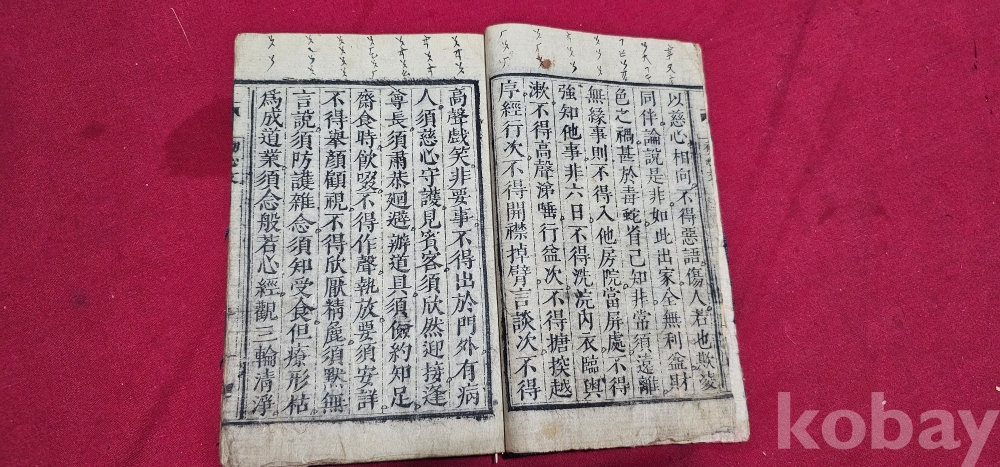 以慈心相向不得惡語傷人若也欺凌
同伴論說是非如此出家全無利益財
色之禍甚於毒蛇省己知非常須遠離
無緣事則不得入他房院當屏處不得
強知他事非六日不得洗浣內衣臨與
漱不得高聲涕唾行益次不得搪揬越
序經行次不得開襟掉臂言談次不得
高聲戲笑非要事不得出於門外有病
人須慈心守護見賓客須欣然迎接逢
尊長須肅恭廻避辦道具須儉約知足
齋食時飮啜不得作聲執放要須安詳
不得擧顏顧視不得欣厭精麁須默無
言說須防護雜念須知受食但療形枯
爲成道業須念般若心經觀三輪清淨
kobay